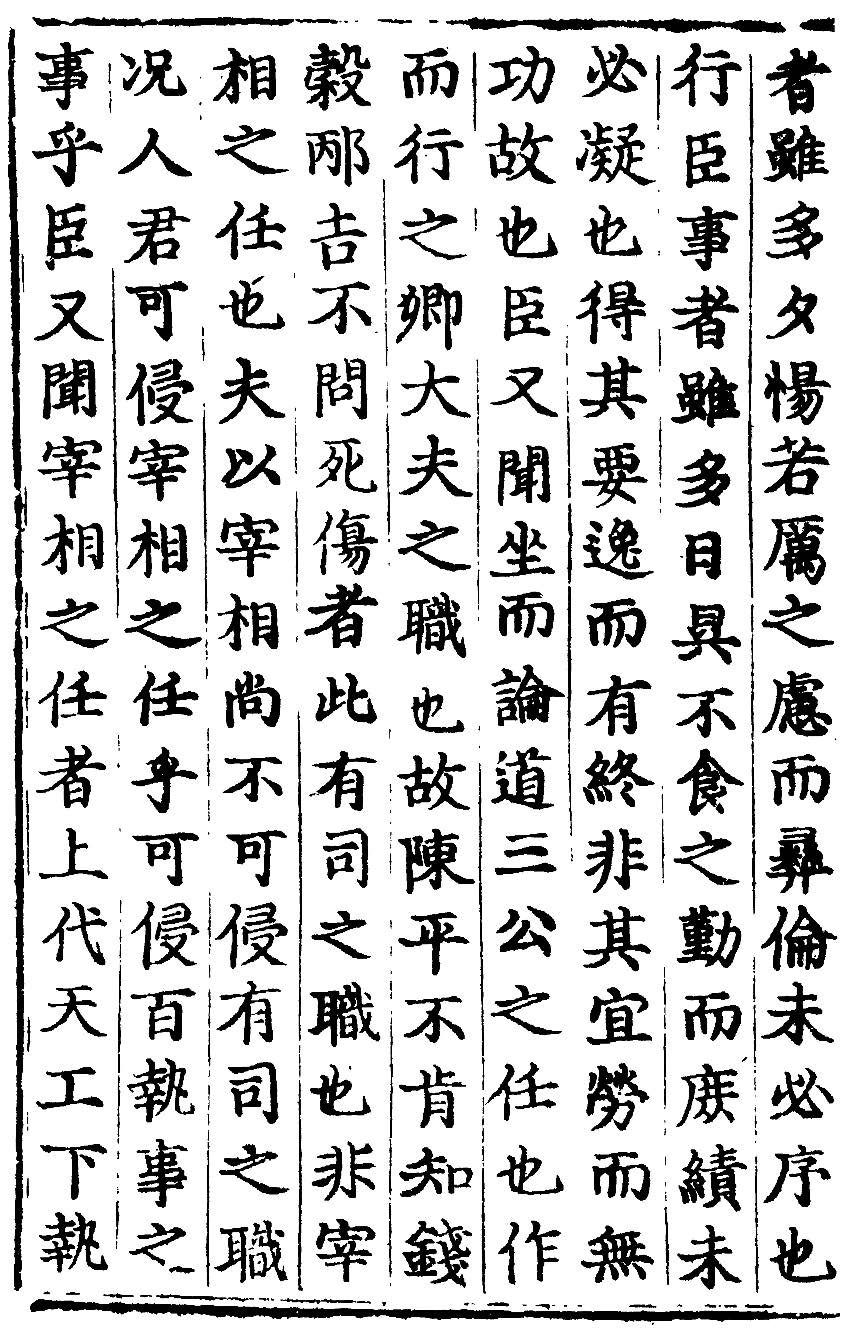 者雖多夕惕若厲之慮而彞倫未必序也
行臣事者雖多日昃不食之勤而庻績未
必凝也得其要逸而有終非其宜勞而無
功故也臣又聞坐而論道三公之任也作
而行之卿大夫之職也故陳平不肯知錢
穀邴吉不問死傷者此有司之職也非宰
相之任也夫以宰相尚不可侵有司之職
况人君可侵宰相之任乎可侵百執事之
事乎臣又聞宰相之任者上代天工下執